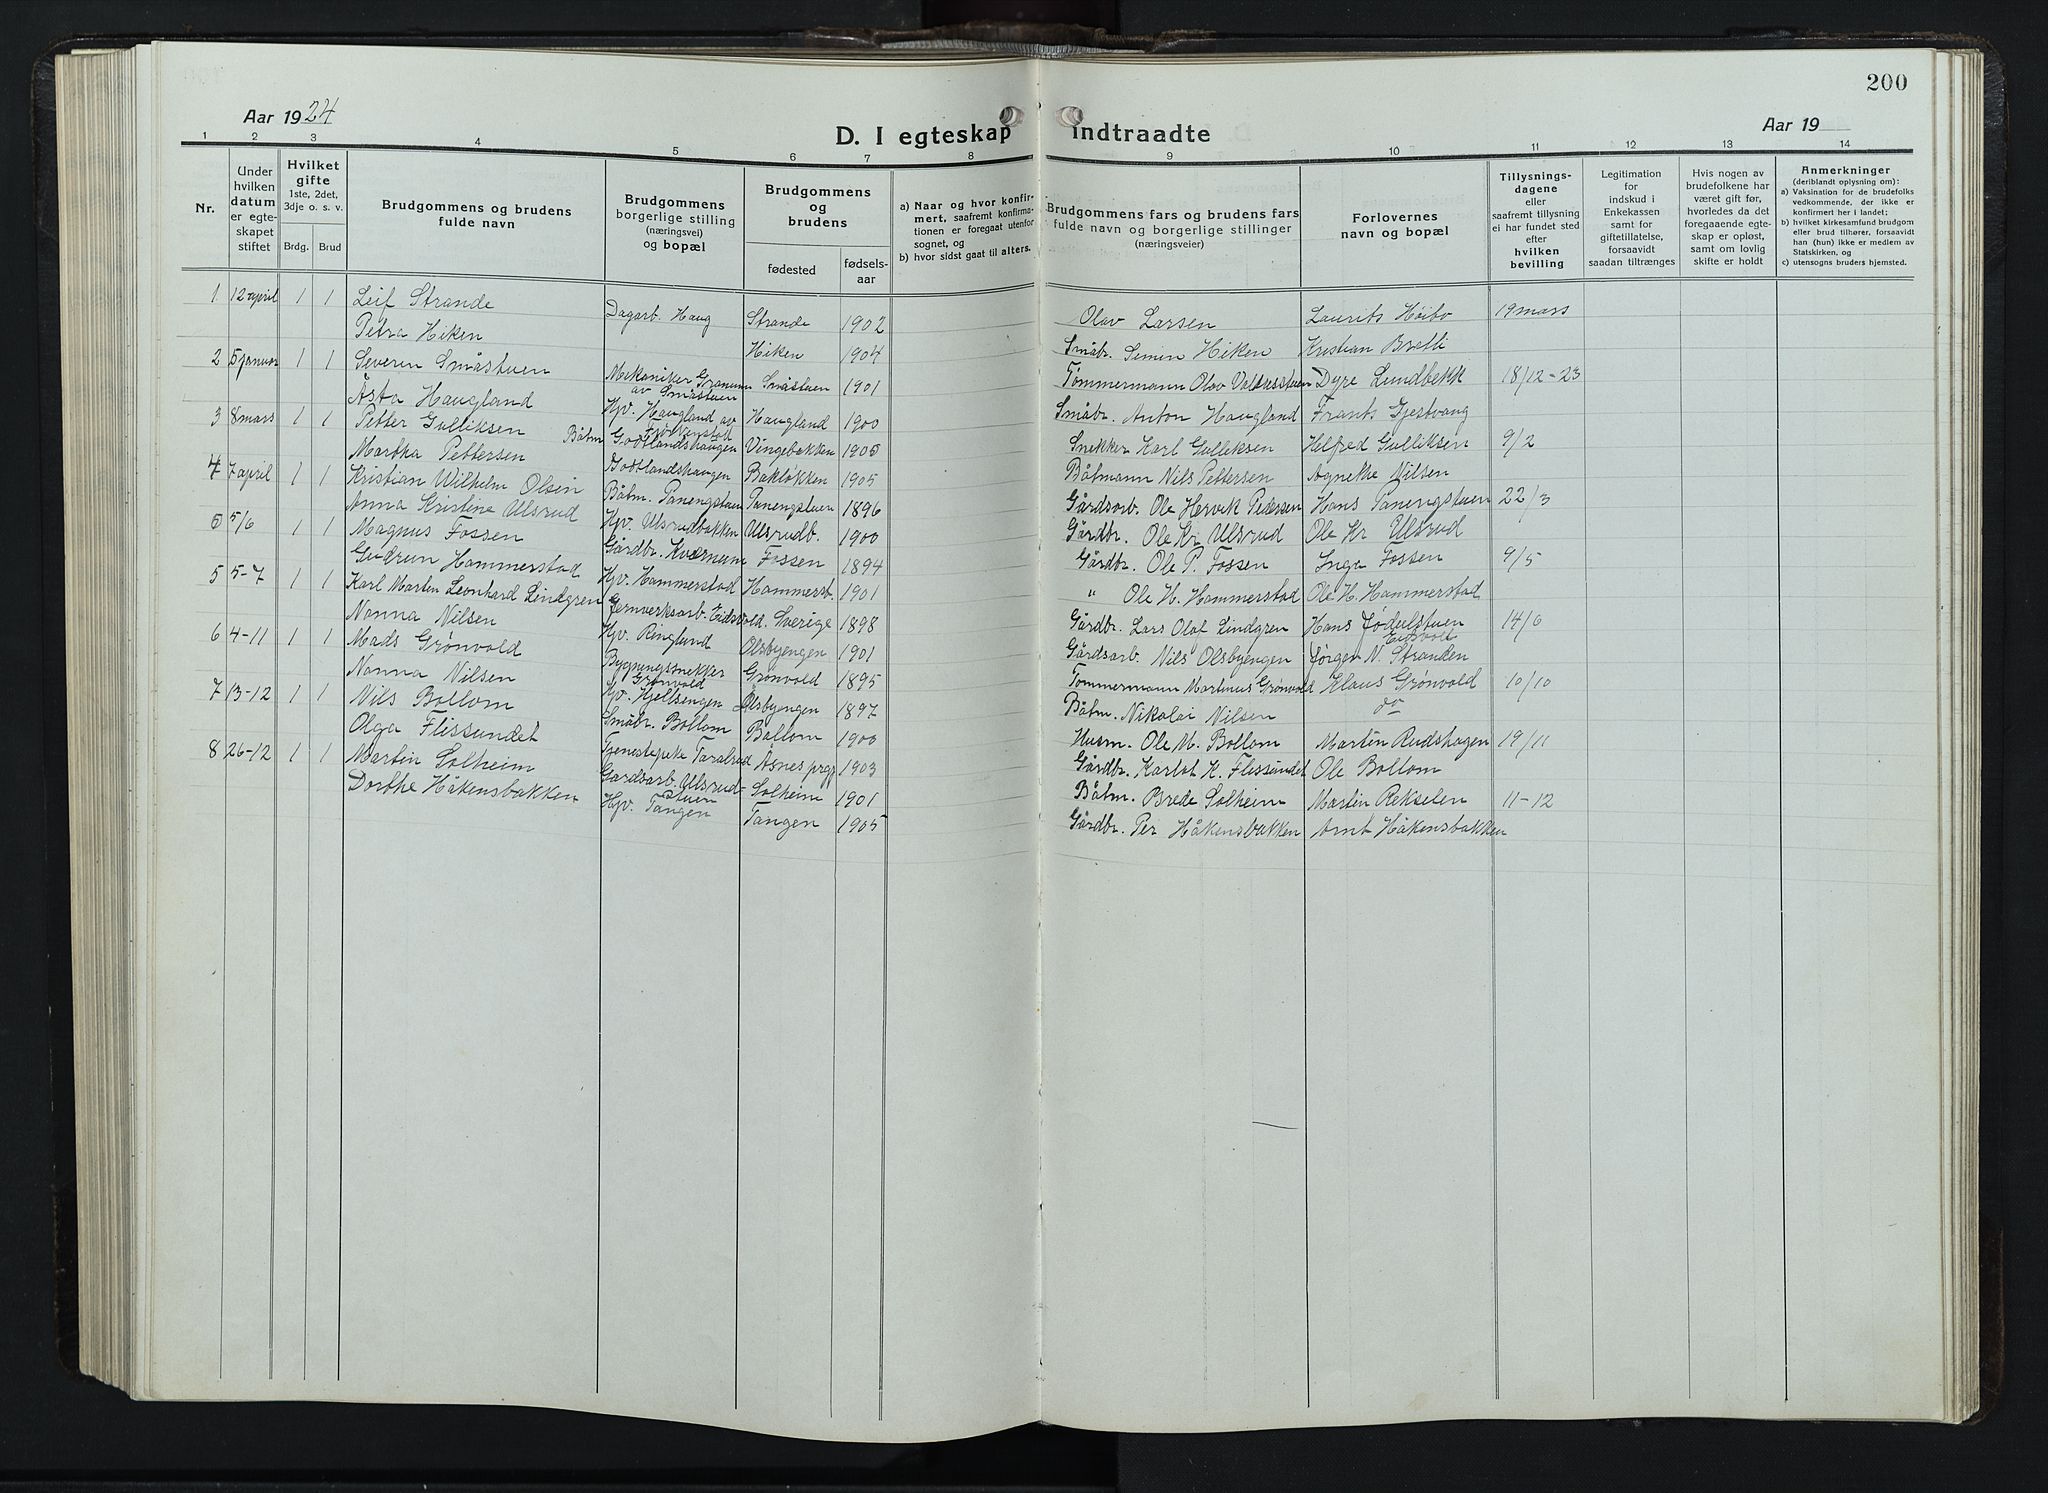 200
Aar 1924
D. I egteskap indtraadte
Aar 19
1 2 3 4 5 6 7 8 9 10 11 12 13 14
Nr.
Under hvilken datum er egteskapet stiftet
Hvilket gifte
1ste, 2det, 3dje o. s. v.
Brdg. Brud
Brudgommens og brudens fulde navn
Brudgommens borgerlige stilling (næringsvei) og bopæl
Brudgommens og brudens
fødested
fødselsaar
a) Naar og hvor konfirmert, saafremt konfirmationen er foregaat utenfor sognet, og
b) hvor sidst gaat til alters.
Brudgommens fars og brudens fars fulde navn og borgerlige stillinger (næringsveier)
Forlovernes navn og bopæl
Tillysningsdagene eller saafremt tillysning ei har fundet sted efter hvilken bevilling
Legitimation for indskud i Enkekassen samt for giftetillatelse, forsaavidt saadan tiltrænges
Hvis nogen av brudefolkene har været gift før, hvorledes da det foregaaende egteskap er opløst, samt om lovlig skifte er holdt
Anmerkninger
(deriblandt oplysning om):
a) Vaksination for de brudefolks vedkommende, der ikke er konfirmert her i landet;
b) hvilket kirkesamfund brudgom eller brud tilhører, forsaavidt han (hun) ikke er medlem av Statskirken, og
c) utensogns bruders hjemsted.
1 12 april 1 1 Leif Strande Dagarb. Haug Strande 1902 Olav Larsen Laurits Høibo 19 mars
Petra Hiken Hiken 1904 Småbr. Simen Hiken Kristian Bretli
2 5 januar 1 1 Severin Småstuen Mekaniker Granum av Småstuen Småstuen 1901 Tømmermann Olav Valdresstuen Dyre Lundbekk 18/12-23
Åsta Haugland Hjv. Haugland av Haugland 1900 Småbr. Anton Haugland Frants Gjestvang
3 8 mars 1 1 Petter Gulliksen Båtm. Godtlandshaugen Vingebakken 1905 Snekker Karl Gulliksen Helfred Gulliksen 9/2
Martha Pettersen Godtlandshaugen Bakløkken 1905 Båtmann Nils Pettersen Agnethe Nilsen
4 7 april 1 1 Kristian Wilhelm Olsen Båtm. Panengstuen Panengstuen 1896 Gårdsarb. Ole Hervik Pedersen Hans Panengstuen 22/3
Anna Kristine Ulsrud Hjv. Ulsrudbakken Ulsrudb. 1900 Gårdbr. Ole Kr Ulsrud Ole Kr Ulsrud
5 5/6 1 1 Magnus Fossen Gårdbr. Kværnum Fossen 1894 Gårdbr. Ole P. Fossen Inga Fossen 9/5
Gudrun Hammerstad Hjv. Hammerstad Hammerst. 1901 " Ole H. Hammerstad Ole H. Hammerstad
5 5-7 1 1 Karl Marten Leonhard Lindgren Jernverksarb. Eidsvold. Sverige 1898 Gårdbr. Lars Olaf Lindgren Hans Jødulstuen Eidsvold 14/6
Nanna Nilsen Hjv. Ringlund Olsbyengen 1901 Gårdsarb. Nils Olsbyengen Jørgen N. Stranden
6 4-11 1 1 Mads Grønvold Bygningssnekker Grønvold Grønvold 1895 Tømmermann Martinus Grønvold Klaus Grønvold 10/10
Nanna Nilsen Hjv. Hjellsengen Olsbyengen 1897 Båtm. Nikolai Nilsen do
7 13-12 1 1 Nils Bollom Småbr. Bollom Bollom 1900 Husm. Ole M. Bollom Martin Rudshagen 19/11
Olga Flissundet Tjenestepike Taralrud Åsnes prgj 1903 Gårdbr. Karlot K. Flissundet Ole Bollom
8 26-12 1 1 Martin Solheim Gårdsarb. Ulsrudstuen Solheim 1901 Båtm. Brede Solheim Martin Rekselen 11-12
Dorthe Håkensbakken Hjv. Tangen Tangen 1905 Gårdbr. Per Håkensbakken Arnt Håkensbakken